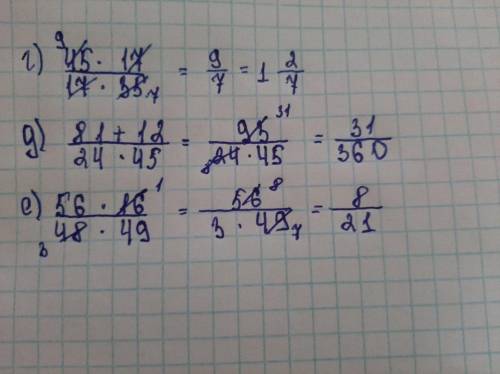 г) (45 · 17)/(17 · 35) = 9/7 = 1 2/7
д) (81 + 12)/(24 · 45) = 93/(24 · 45) = 31/360
е) (56 · 16)/(48 · 49) = 56/(3 · 49) = 8/21